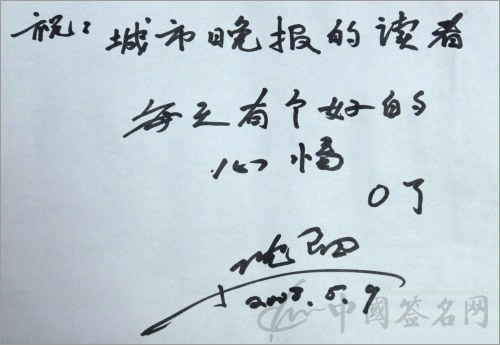 祝：城市晚报的读者
每天有个好的
心情
O了
中國签名网